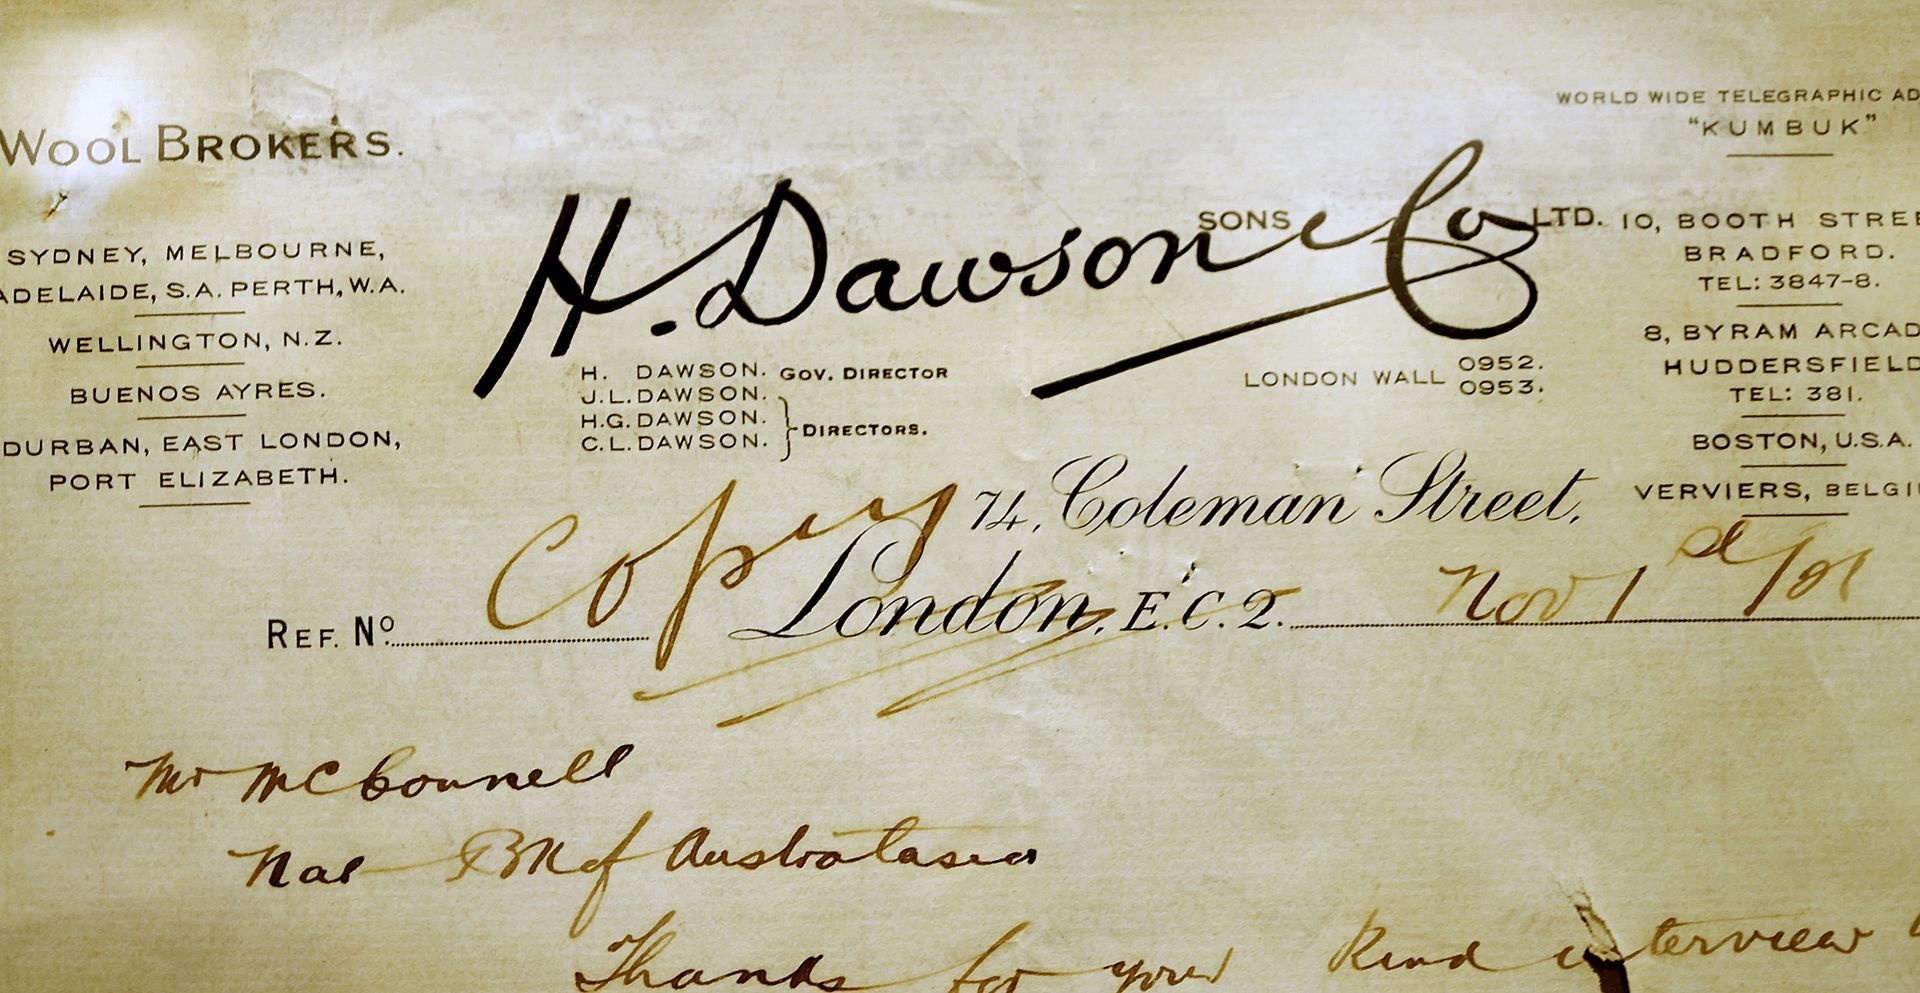 WORLD WIDE TELEGRAPHIC AD
"KUMBUK"
WOOL BROKERS.
H. Dawson SONS & Co LTD.
SYDNEY, MELBOURNE,
ADELAIDE, S.A. PERTH, W.A.
WELLINGTON, N.Z.
BUENOS AYRES.
DURBAN, EAST LONDON,
PORT ELIZABETH.
H. DAWSON. GOV. DIRECTOR
J.L. DAWSON.
H.G. DAWSON.
C.L. DAWSON.
DIRECTORS.
LONDON WALL 0952.
0953.
10, BOOTH STREE
BRADFORD.
TEL: 3847-8.
8, BYRAM ARCAD
HUDDERSFIELD
TEL: 381.
BOSTON, U.S.A.
VERVIERS, BELGIU
74, Coleman Street,
Copy
London, E.C.2.
Nov 1st
REF. No.
Mr McConnell
Nat Bk of Australasia
Thanks for your kind interview